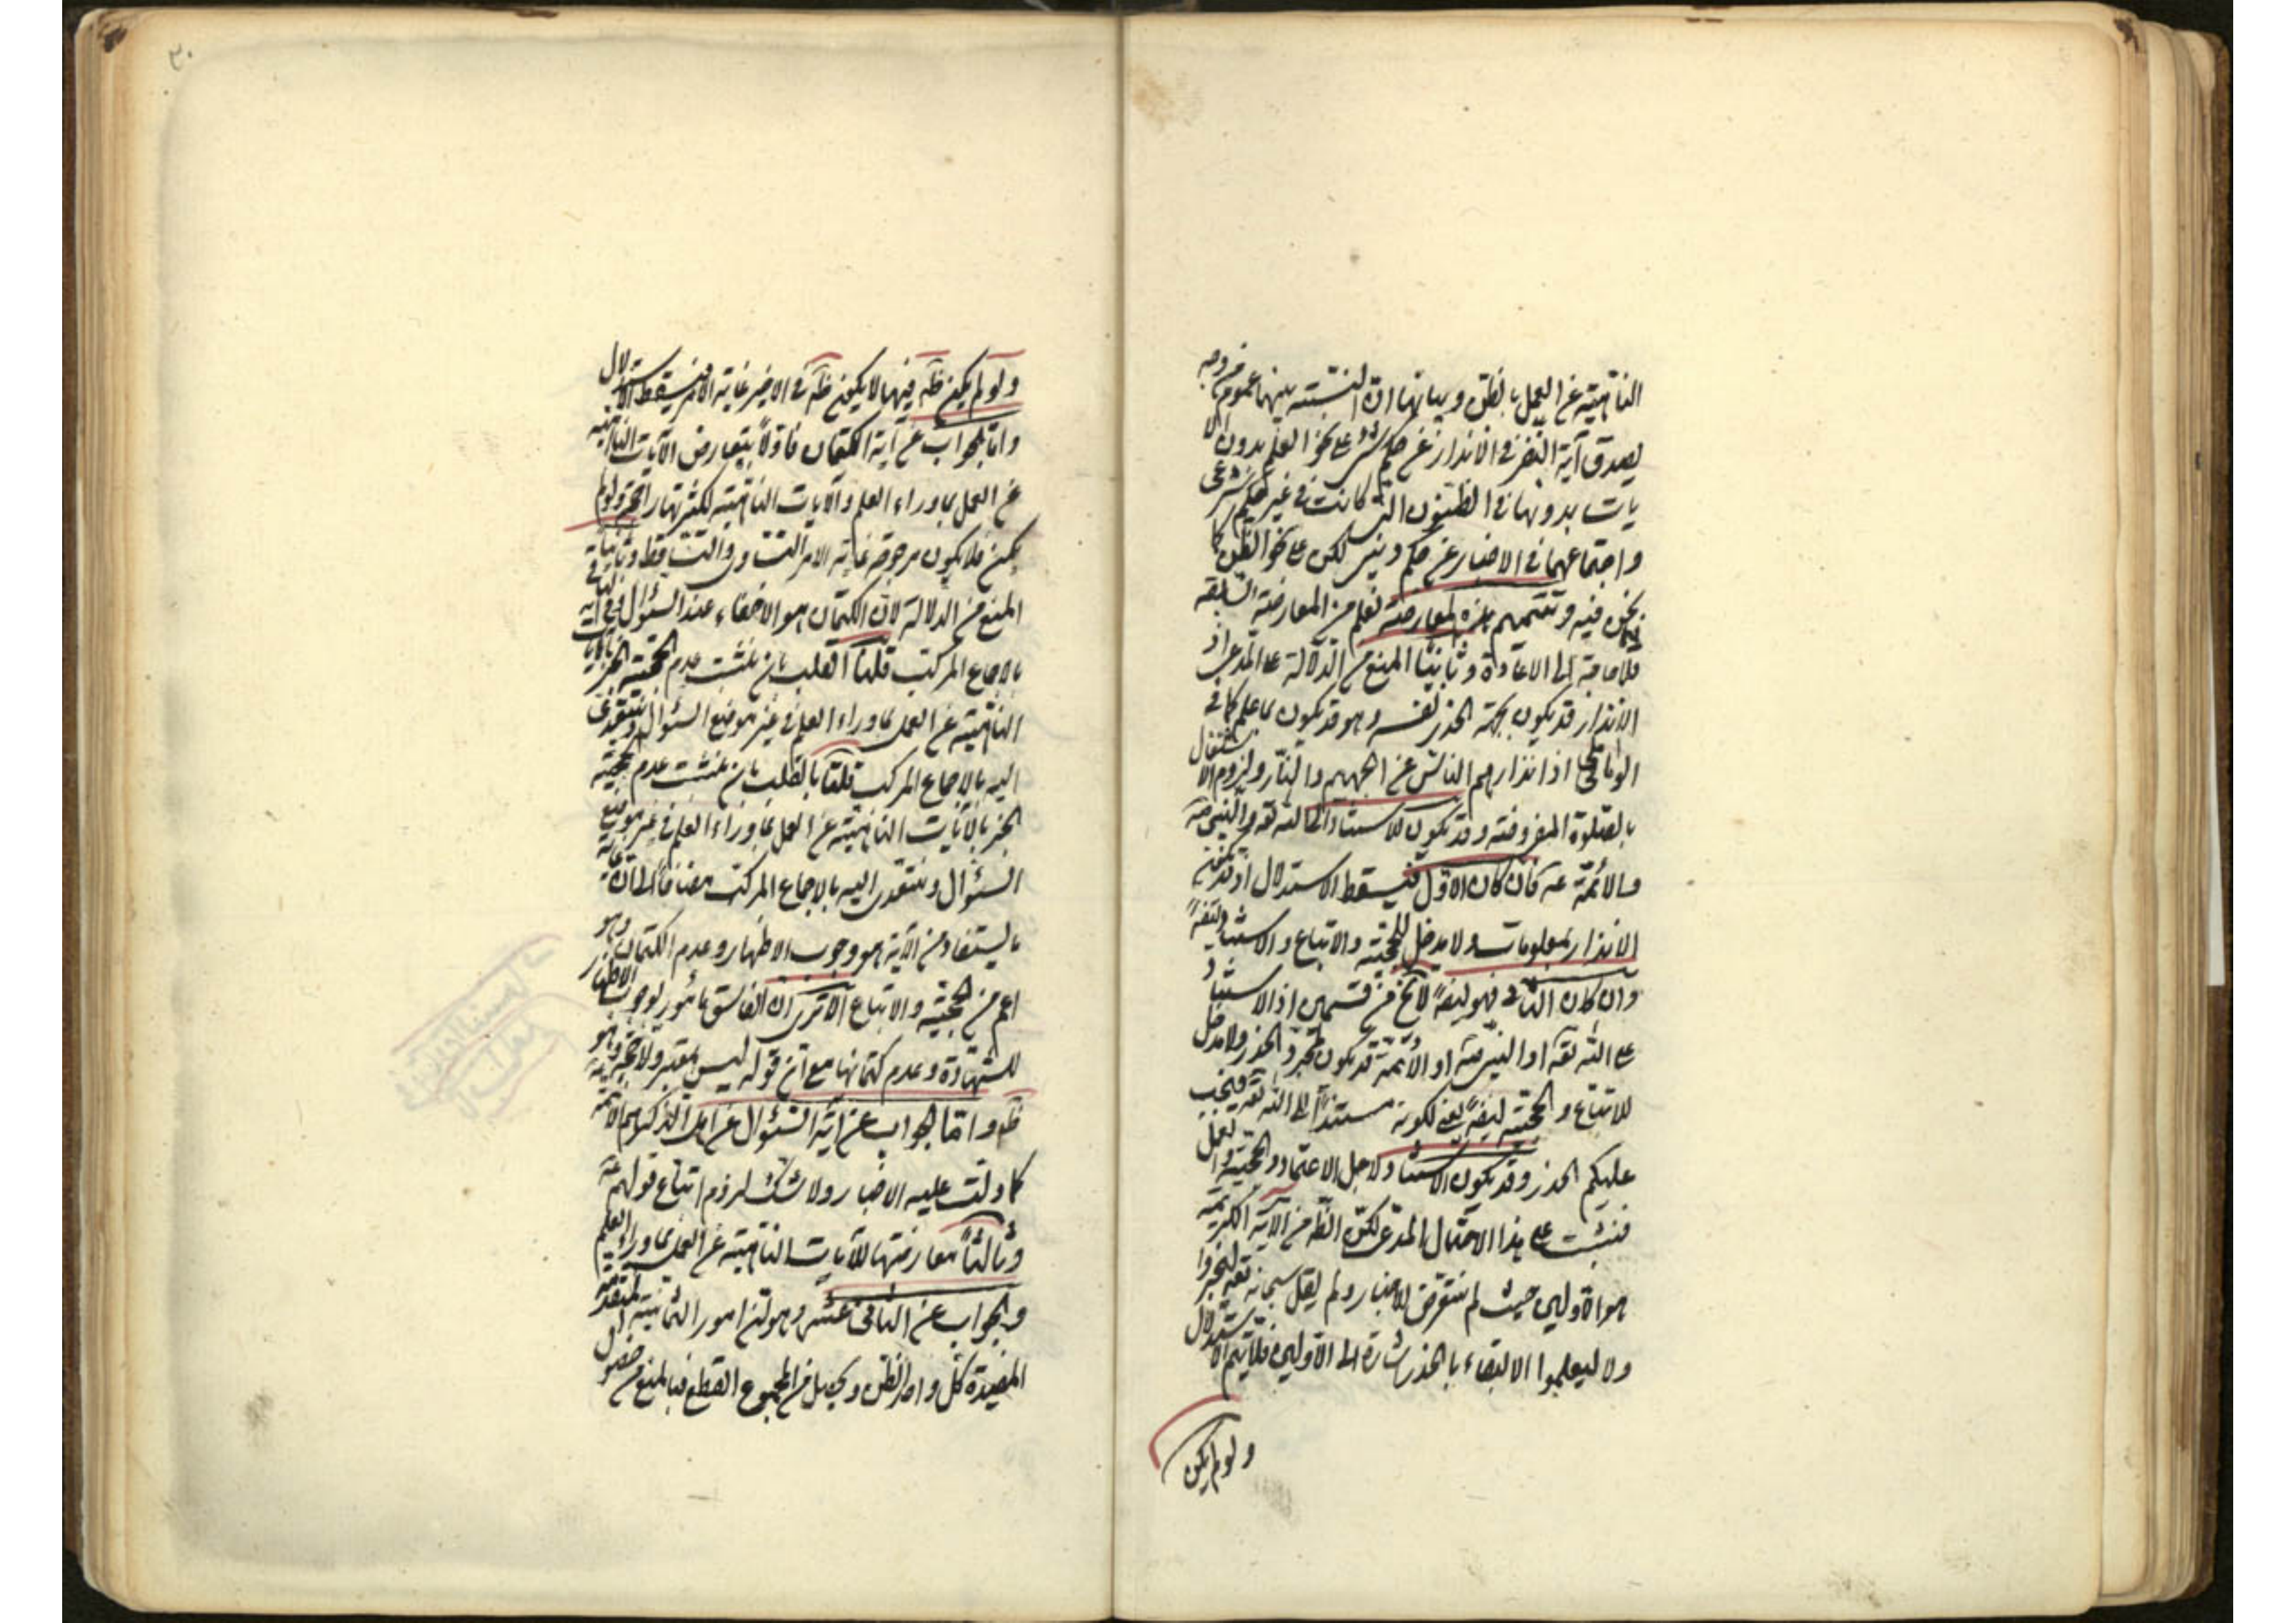 الناهية عن العمل بالظن وبيانها ان النسبة بينهما عموم من وجه
يصدق آية النفر في الانذار عن حكم شرعي على نحو العلم بدون الا
يات بدونها في الظنون التي كانت في غير حكم شرعي
واجتماعهما في الاخبار عن حكم ديني لكن على نحو الظن كما
نحن فيه وتتميم هذه المعارضة تعلم من المعارضة السابقة
فلا حاجة الى الاعادة وثانيا المنع من الدلالة على المدعى اذ
الانذار قد يكون بجهة الحذر نفسه وهو قد يكون بما علم كما في
اذ انذارهم الناس عن الجهيم والنار ولزوم الاشتغال
بالصلوة المفروضة وقد يكون للاستناد الى الله تعه والنبي صه
والائمة عه فان كان الاول فيسقط الاستدلال اذ قد يكون
الانذار بمعلومات ولا مدخل للحجية والاتباع والاستناد ايضا
وان كان الثاني فهو ايضا لا يخ من قسمين اذ الاستناد
على الله تعه او النبي صه او الائمة قد يكون لمجرد الحذر ولا مدخل
للاتباع والحجية ايضا يعني لكونه مستندا الى الله تعه فيجب
عليكم الحذر وقد يكون الاستناد لاجل الاعتماد والحجية والعمل
فيثبت على هذا الاحتمال المدعى لكن الظه من الآية الكريمة
هو الاولين حيث لم يتعرض للاخبار ولم يقل سبحانه تعه ليخبروا
ولا ليعلموا الالتقاء بالحذر شارة الى الاولين فلا يتم الاستدلال
ولو لم يكن
٣٠
ولو لم يكن ظه فيهما لا يكون ظه في الاخير غاية الامر فيسقط الاستدلال
واما الجواب عن آية الكتمان فاولا بتعارض الآيات الناهية
عن العمل بما وراء العلم والآيات الناهية لكثرتها راجحة ولو لم
يكن فلا يكون مرجوحة غاية الامر التساوى والتساقط وثانيا
المنع من الدلالة لان الكتمان هو الاخفاء عند السؤال
بالاجماع المركب قلنا القلب بان نثبت عدم حجية الخبر بالآيات
الناهية عن العمل بما وراء العلم في غير موضع السؤال ونتعدى
اليه بالاجماع المركب قلنا بالقلب بان نثبت عدم حجية
الخبر بالآيات الناهية عن العمل بما وراء العلم في غير موضع
السؤال ونتعدى اليه بالاجماع المركب مضافا الى ان غاية
ما يستفاد من الآية هو وجوب الاظهار وعدم الكتمان وهو
اعم من الحجية والاتباع الا ترى ان الفاسق مأمور بوجوب الاظهار
للشهادة وعدم كتمانها مع ان قوله ليس بمعتبر ولا حجة وهو
ظه واما الجواب عن آية السؤال عن اهل الذكر هم الائمة
كما دلت عليه الاخبار ولا شك لزوم اتباع قولهم عه
وثالثا معارضتها للآيات الناهية عن العمل بما وراء العلم
والجواب عن الثاني عشر وهو ان امور الثمانية المتقدمة
المفيدة كل واحد الظن ويحصل من المجموع القطع فبالمنع من حصول